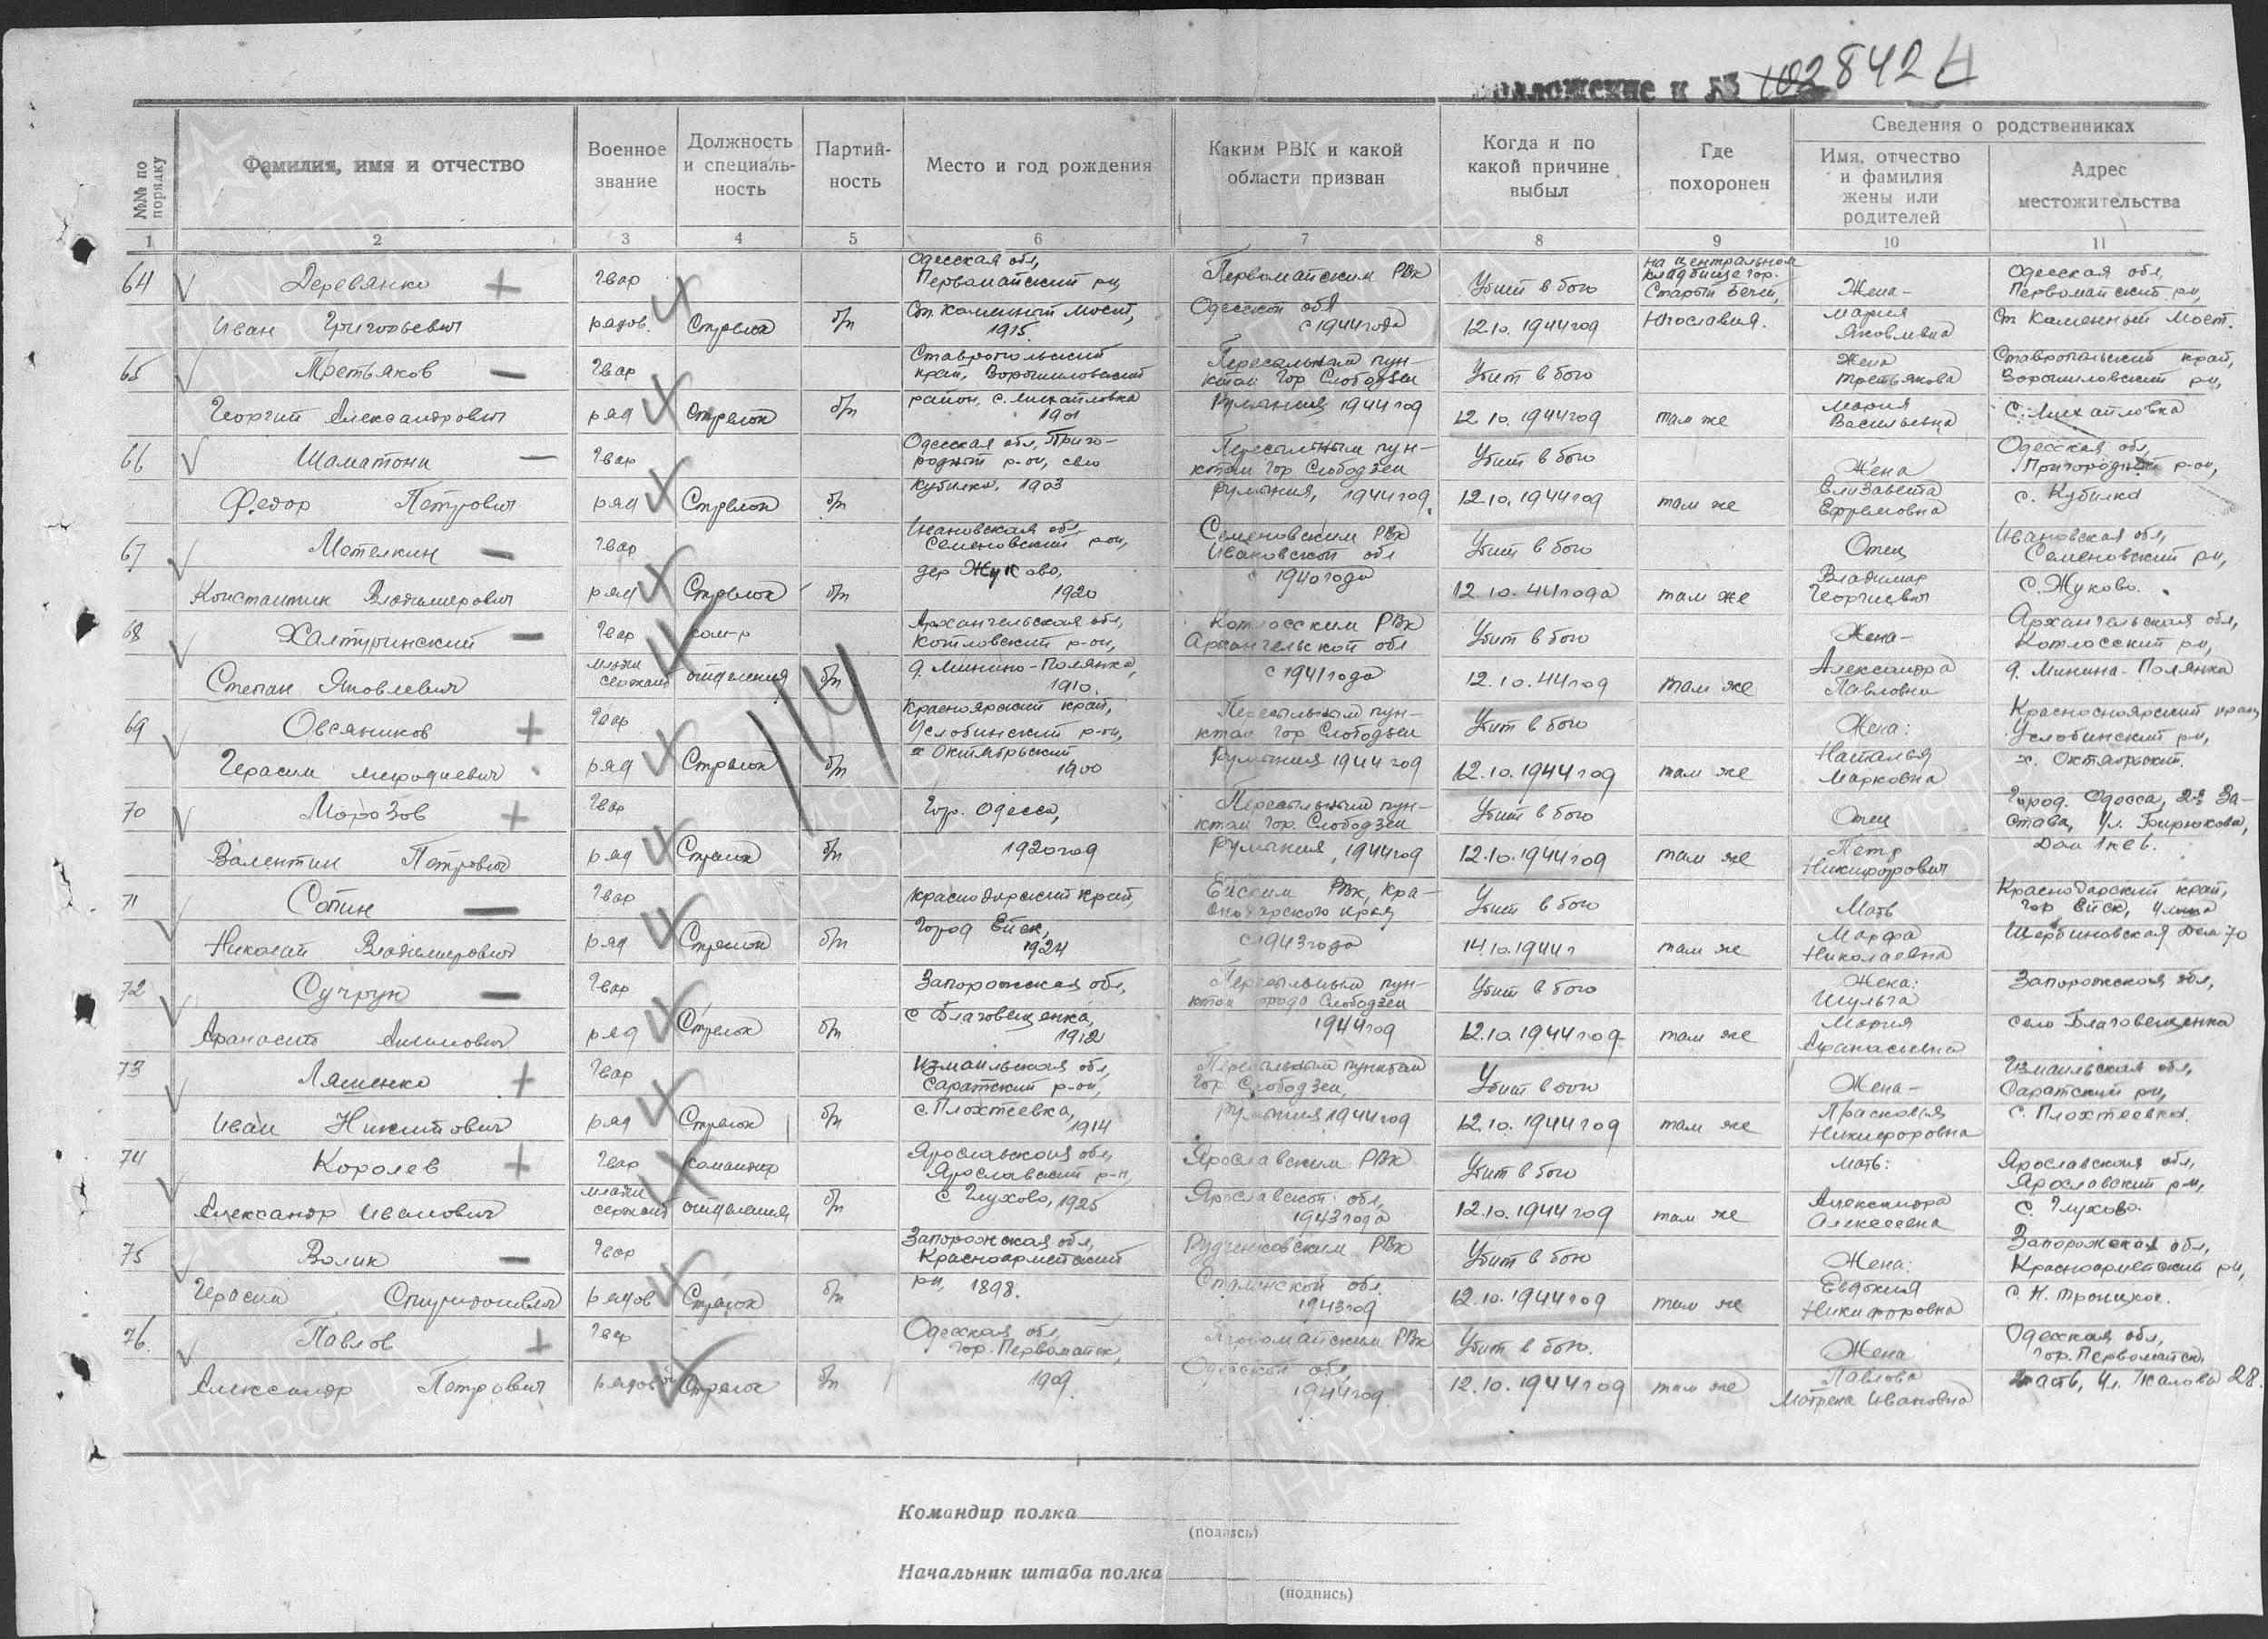 102842
№№ по порядку
Фамилия, имя и отчество
Военное звание
Должность и специаль-ность
Партий-ность
Место и год рождения
Каким РВК и какой области призван
Когда и по какой причине выбыл
Где похоронен
Сведения о родственниках
Имя, отчество и фамилия жены или родителей
Адрес местожительства
1 2 3 4 5 6 7 8 9 10 11
64 Деревянко Гвар Одесская обл, Первомайский рн, Первомайским РВК Убит в бою на центральном кладбище гор. Старый Бечей, Жена- Одесская обл, Первомайский рн,
Иван Григорьевич рядов. Стрелок б/п Ст. Каменный мост, 1915. Одесской обл с 1944 года 12.10.1944 год Югославия. Мария Яковлевна Ст Каменный Мост.
65 Третьяков Гвар Ставропольский край, Ворошиловский Пересыльным пун-ктом гор Слободзеи Убит в бою Жена Третьякова Ставропольский край, Ворошиловский рн,
Георгий Александрович ряд Стрелок б/п район, с. Михайловка 1901 Румыния 1944 год 12.10.1944 год там же Мария Васильевна с. Михайловка
66 Гвар Одесская обл, Приго-родный р-он, село Пересыльным пун-ктом гор Слободзеи Убит в бою Жена Одесская обл, Пригородный р-он,
Федор Петрович ряд Стрелок б/п Кубилка, 1903 Румыния, 1944 год. 12.10.1944 год там же Елизавета Ефремовна с. Кубилка
67 Мотелкин Гвар Ивановская обл, Семеновский р-он, Семеновским РВК Ивановской обл Убит в бою Отец Ивановская обл, Семеновский рн,
Константин Владимирович ряд Стрелок б/п дер Жуково, 1920 с 1940 года 12.10.44 года там же Владимир Георгиевич с. Жуково.
68 Халтуринский Гвар ком-р Архангельская обл, Котловский р-он, Котлосским РВК Архангельской обл Убит в бою Жена- Архангельская обл, Котлосский рн,
Степан Яковлевич младш сержант отделения б/п д. Минино-Полянка, 1910. с 1941 года 12.10.44 год там же Александра Павловна д. Минина-Полянка
114
69 Овсяников Гвар Красноярский край, Услобинский р-он, Пересыльным пун-ктом гор Слободзеи Убит в бою Жена: Красносноярский край Услобинский рн,
Герасим Мефодиевич ряд Стрелок б/п х Октябрьский 1900 Румыния 1944 год 12.10.1944 год там же Наталья Марковна х. Октябрьский.
70 Морозов Гвар Гор. Одесса, Пересыльным пун-ктом гор. Слободзеи Убит в бою Отец Город. Одесса, 2я За-става, ул. Бирюкова,
Валентин Петрович ряд Стрелок б/п 1920 год Румыния, 1944 год 12.10.1944 год там же Петр Никифорович Дом 1 кв 6.
71 Сопин Гвар Краснодарский край, Ейским РВК, Кра-снодарского края Убит в бою Мать Краснодарский край, гор Ейск, улица
Николай Владимирович ряд Стрелок б/п город Ейск, 1924 с 1943 года 14.10.1944 г там же Марфа Николаевна Щербиновская дом 70
72 Сучрун Гвар Запорожская обл, Пересыльным пун-ктом города Слободзеи Убит в бою Жена: Шульга Запорожская обл,
Афанасий Акимович ряд Стрелок б/п с Благовещенка, 1912 1944 год 12.10.1944 год там же Мария Афанасиевна село Благовещенка
73 Ляшенко Гвар Измаильская обл, Саратский р-он, Пересыльным пунктом гор. Слободзеи, Убит в бою Жена- Измаильская обл, Саратский рн,
Иван Никитович ряд Стрелок б/п с. Плохтеевка, 1914 Румыния 1944 год 12.10.1944 год там же Прасковья Никифоровна с. Плохтеевка.
74 Королев Гвар командир Ярославская обл, Ярославский р-н, Ярославским РВК Убит в бою Мать: Ярославская обл, Ярославский рн,
Александр Иванович младш сержант отделения б/п с Глухово, 1925 Ярославской обл, 1943 года 12.10.1944 год там же Александра Алексеевна с. Глухово.
75 Волик Гвар Запорожская обл, Красноармейский Рудченковским РВК Убит в бою Жена: Запорожская обл, Красноармейский рн,
Герасим Спиридонович рядов Стрелок б/п рн, 1898. Сталинской обл. 1943 год 12.10.1944 год там же Евдокия Никифоровна с. Н. Троицкое.
76. Павлов Гвар Одесская обл, гор. Первомайск, Первомайским РВК Убит в бою. Жена Одесская обл, гор. Первомайск,
Александр Петрович рядовой Стрелок б/п 1909. Одесской обл, 1944 год. 12.10.1944 год там же Павлова Матрена Ивановна ул. Чкалова 28.
Командир полка
(подпись)
Начальник штаба полка
(подпись)